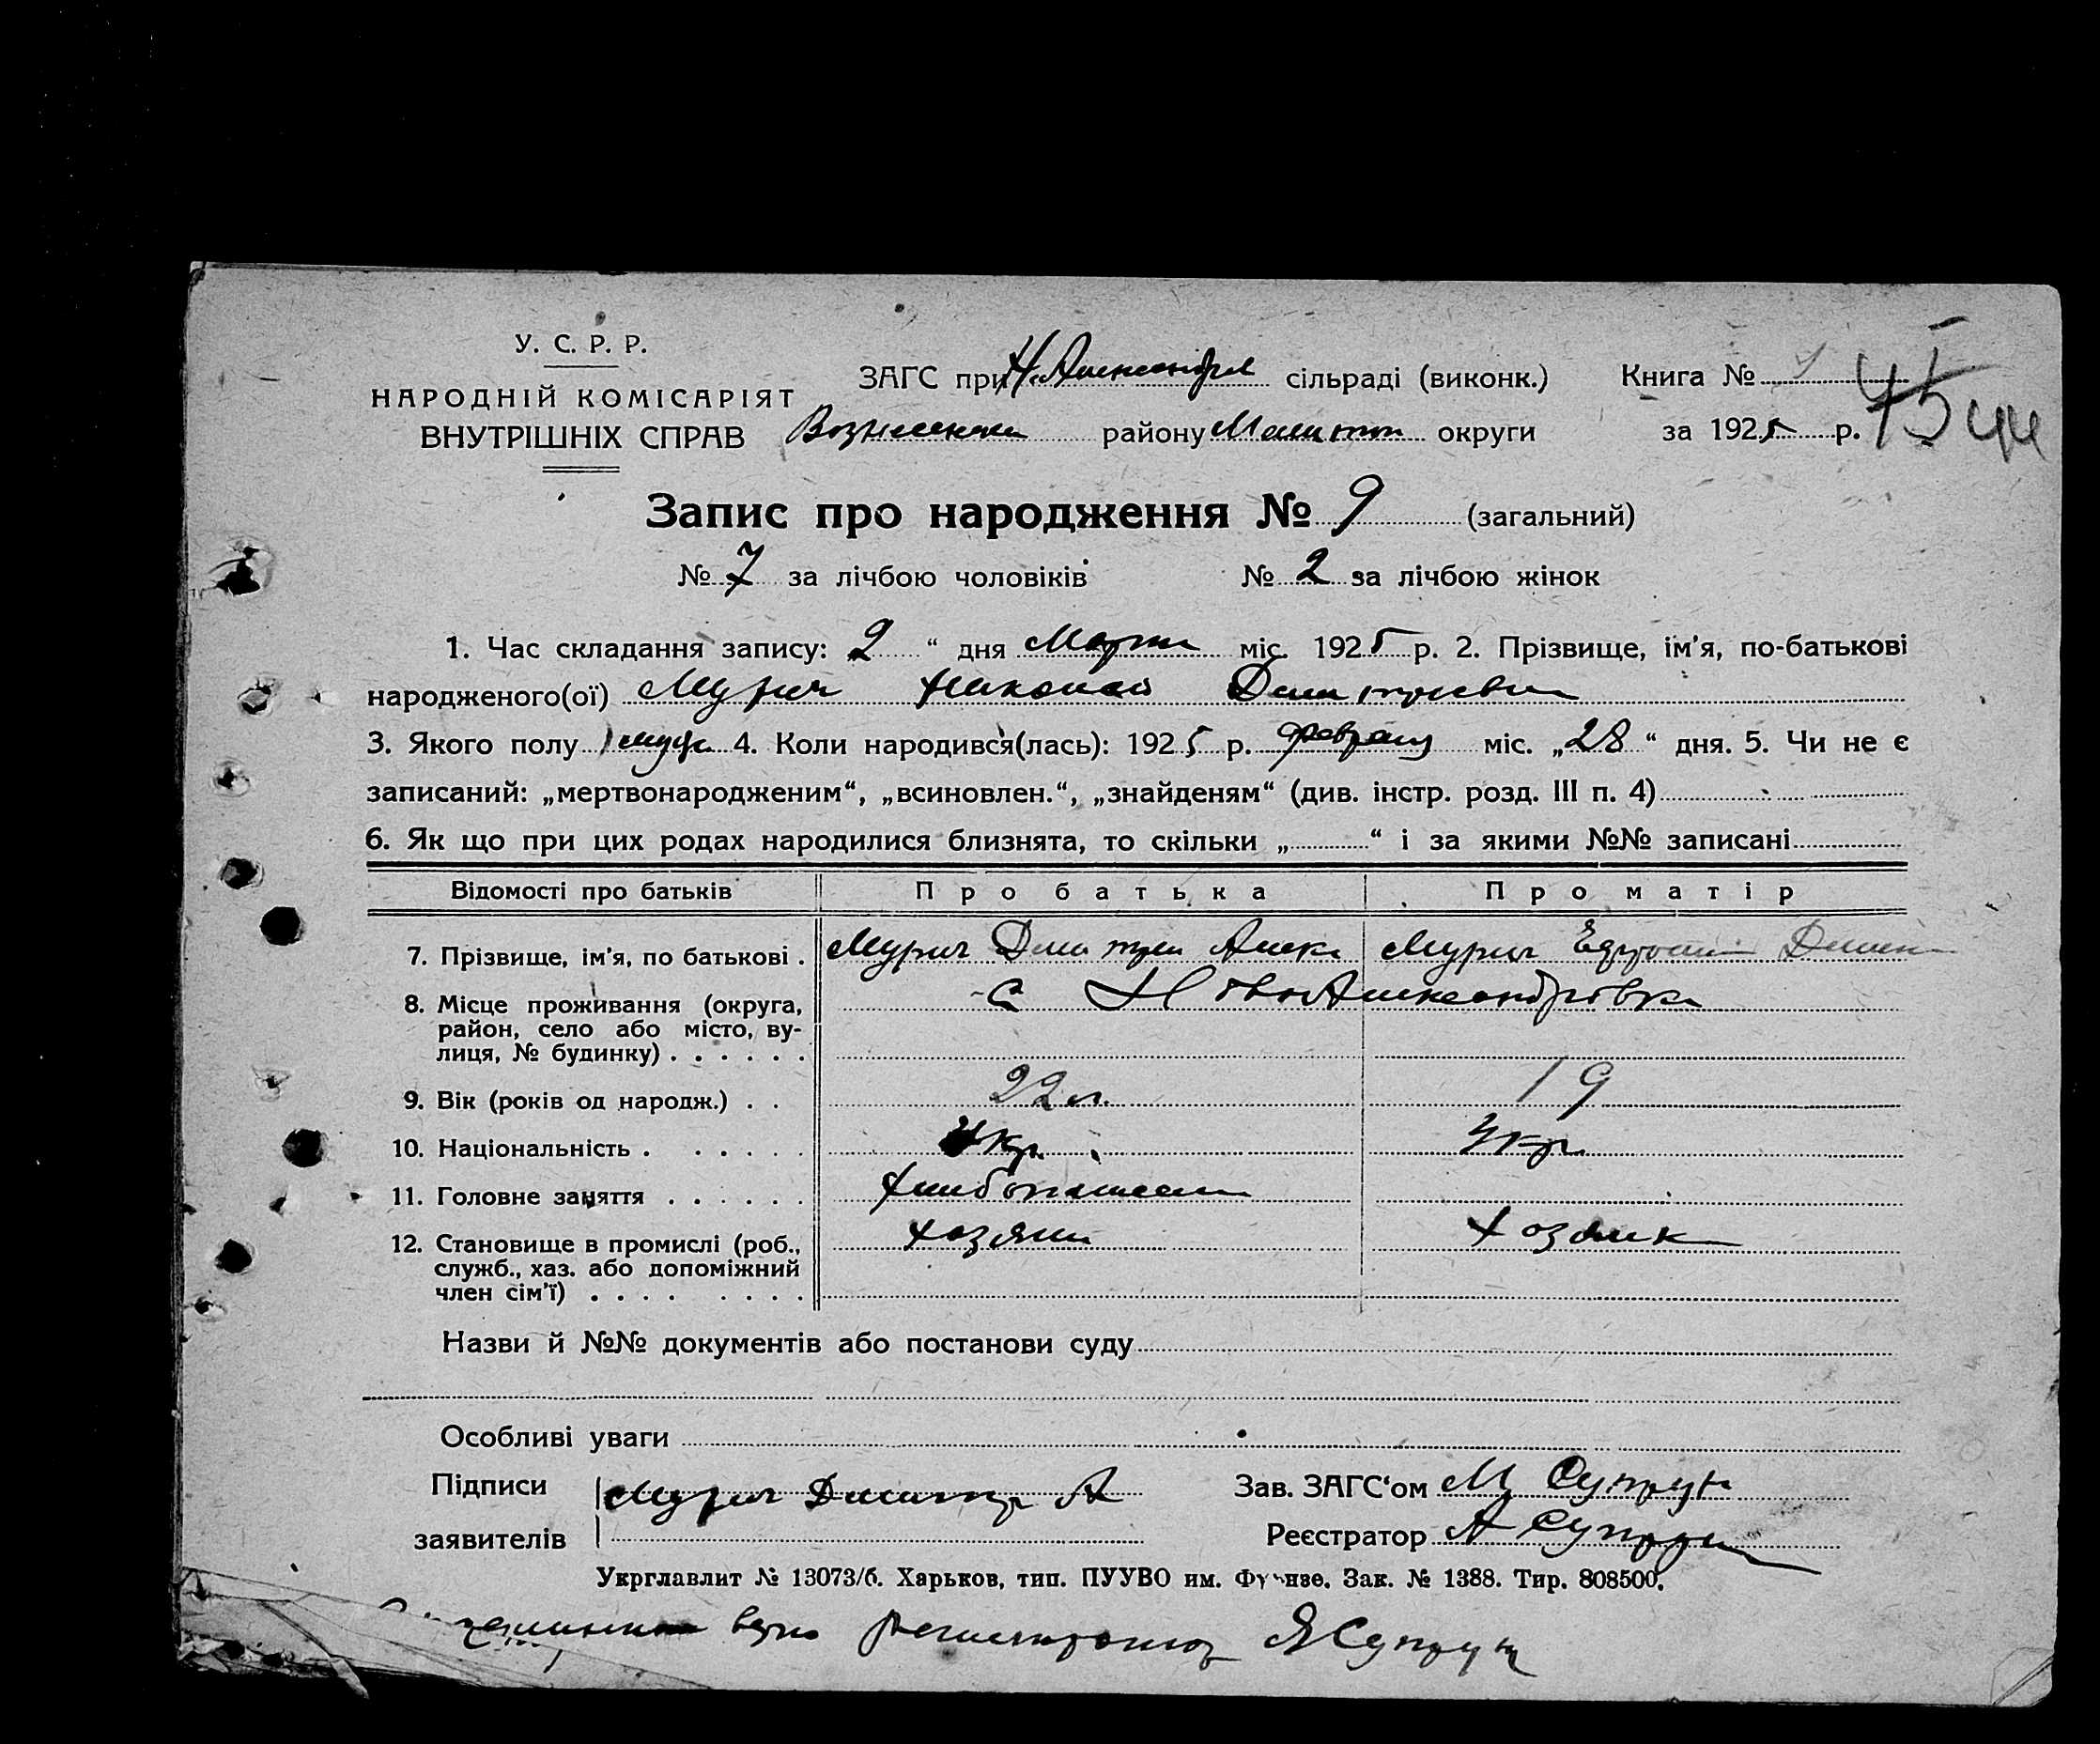 У. С. Р. Р.
НАРОДНІЙ КОМІСАРІЯТ
ВНУТРІШНІХ СПРАВ
ЗАГС при Н. Александров сільраді (виконк.)
района Мелитоп округи
Книга №
за 1925 р.
Запис про народження № 9 (загальний)
№ 7 за лічбою чоловіків № 2 за лічбою жінок
1. Час складання запису: 2 “ дня Марта міс. 1925 р. 2. Прізвище, ім’я, по-батькові
народженого(ої) Мурич Николай Дмитриевич
3. Якого полу муж. 4. Коли народився(лась): 1925 р. февраля міс. „28“ дня. 5. Чи не є
записаний: „мертвонародженим“, „всиновлен.“, „знайденям“ (див. інстр. розд. III п. 4)
6. Як що при цих родах народилися близнята, то скільки „ “ і за якими №№ записані
Відомості про батьків Про батька Про матір
7. Прізвище, ім’я, по батькові . Мурич Дмитри Алекс Мурич
8. Місце проживання (округа, с НовоАлександровка
район, село або місто, ву-
лиця, № будинку) . . . . . .
9. Вік (років од народж.) . . 22 л. 19
10. Національність . . . . . . Укр. Укр.
11. Головне заняття . . . . . . Хлебопашец
12. Становище в промислі (роб., хозяин хозяик
служб., хаз. або допоміжний
член сім’ї) . . . . . . . .
Назви й №№ документів або постанови суду
Особливі уваги
Підписи Мурич Дмитр А
заявителів
Зав. ЗАГС‘ом М Супрун
Реєстратор А Супрун
Укрглавлит № 13073/б. Харьков, тип. ПУУВО им. Фрунзе. Зак. № 1388. Тир. 808500.
верно Регистратор Супрун